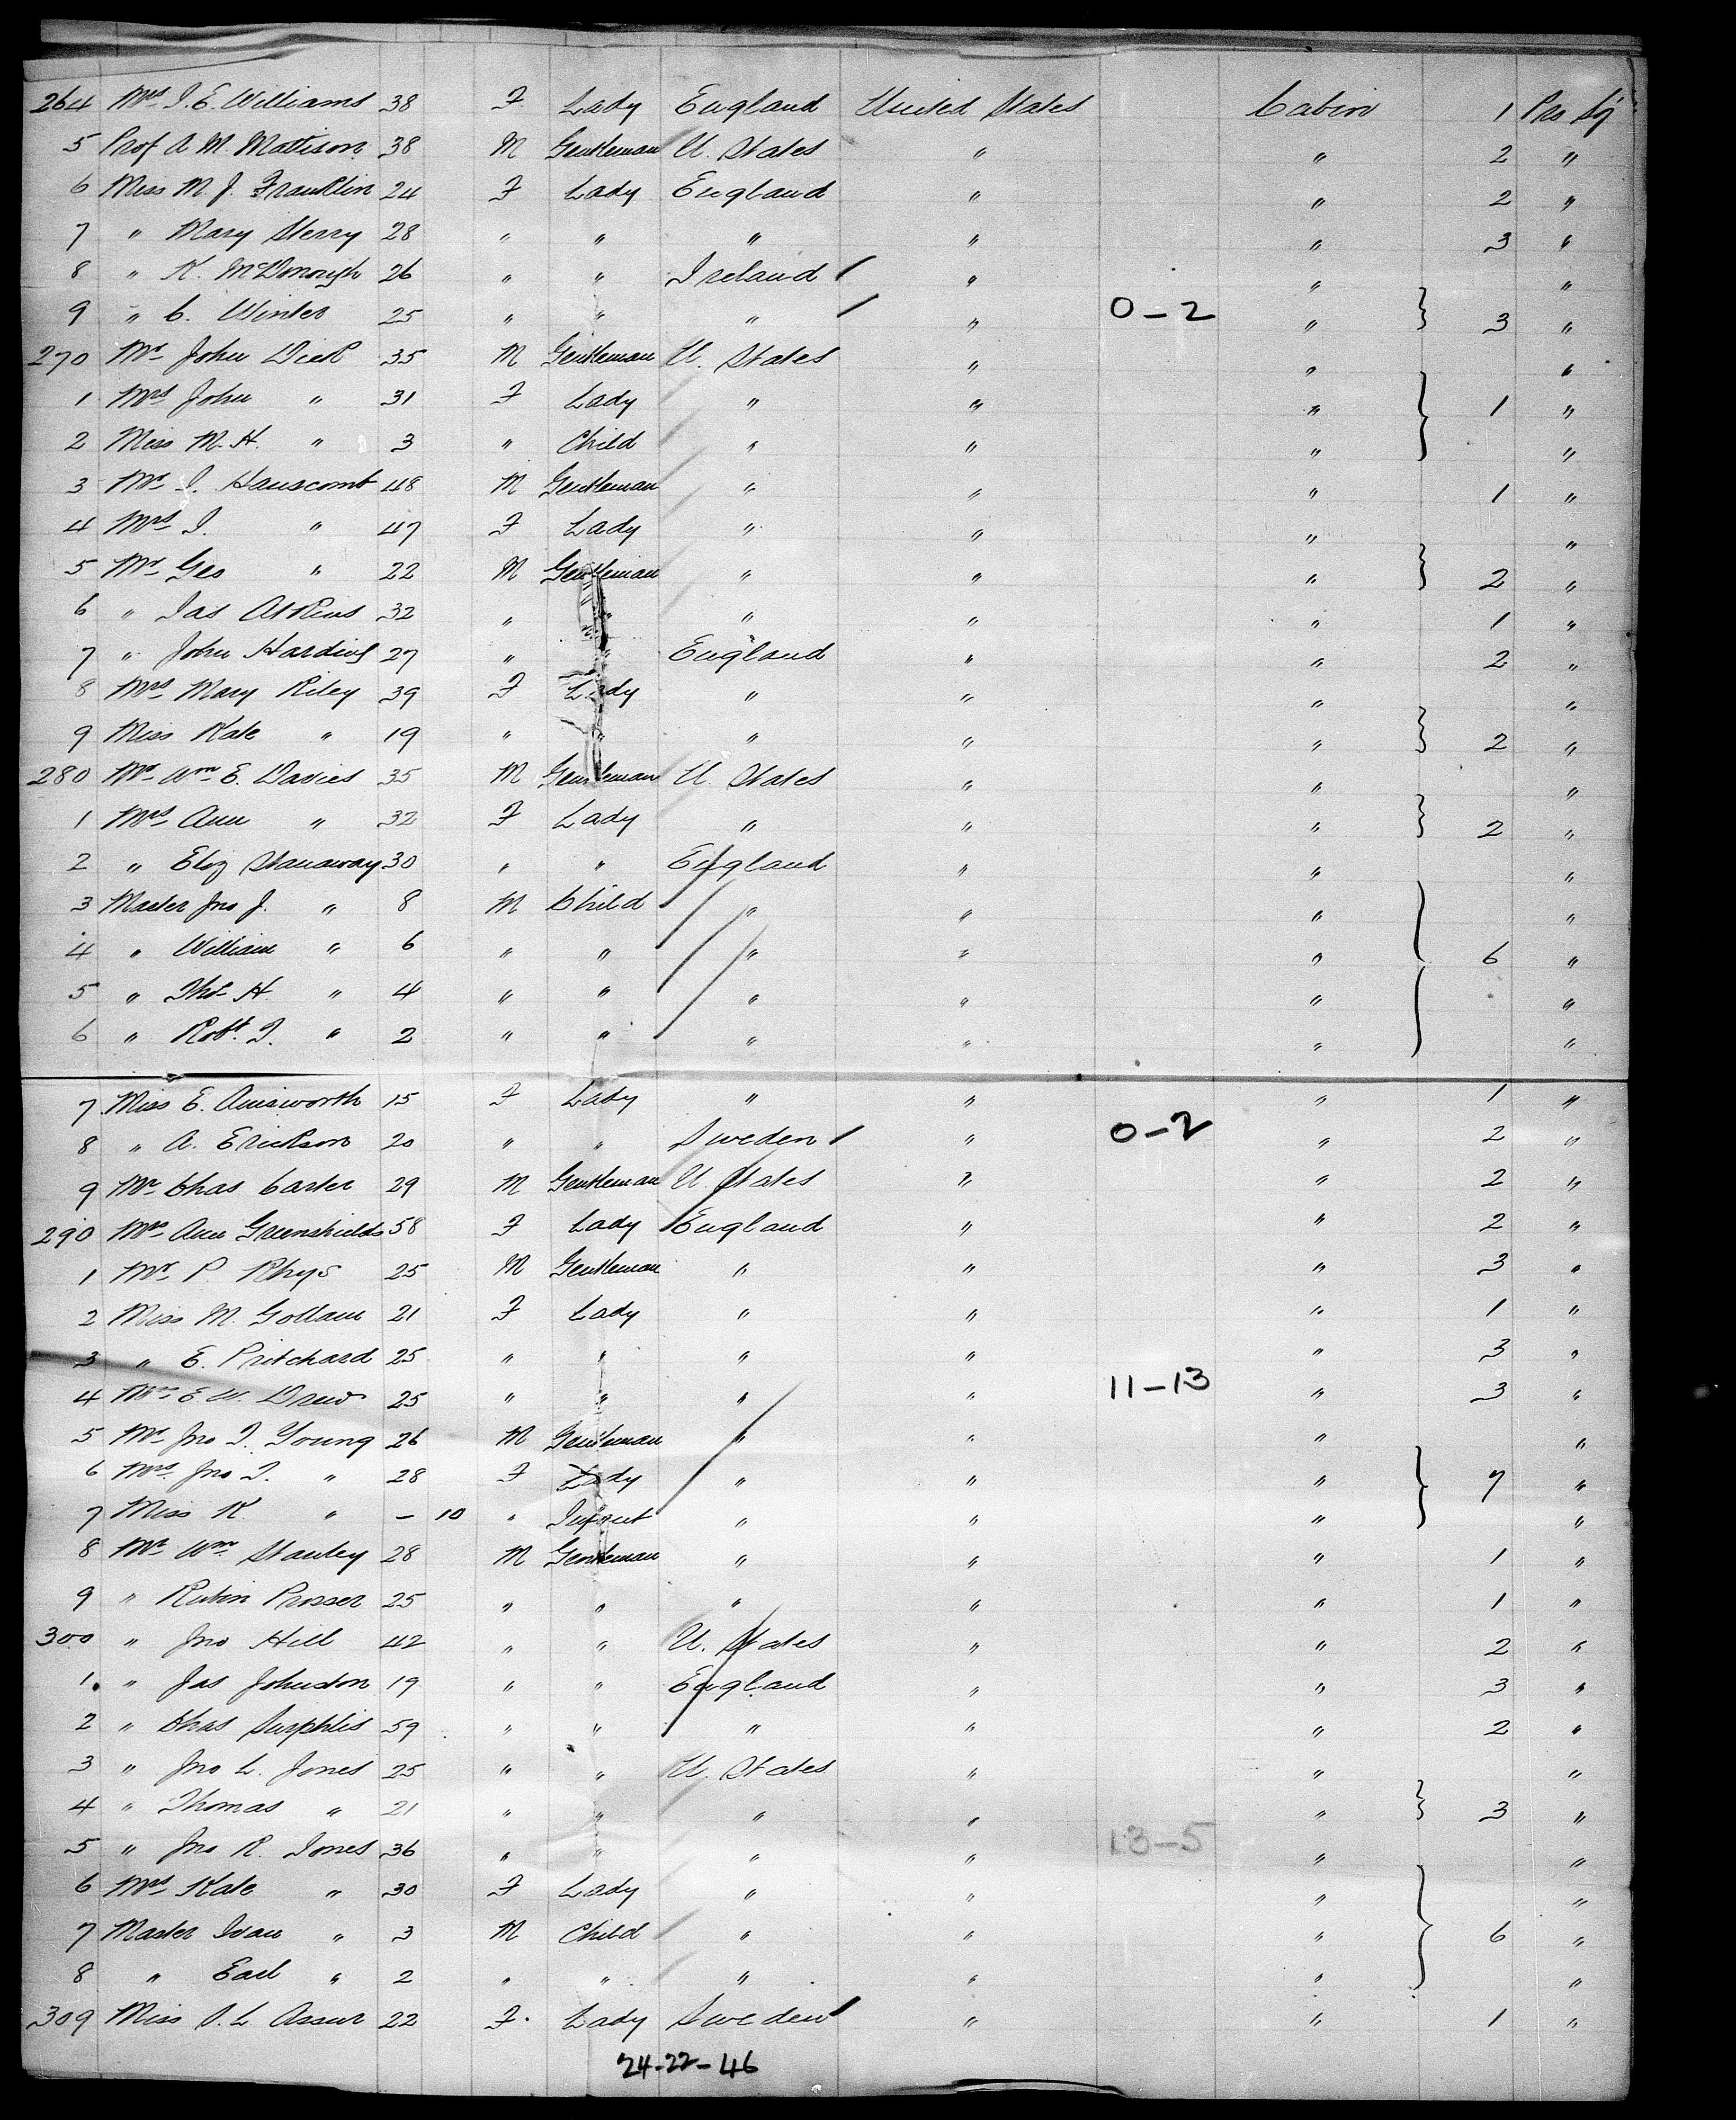 264 Mrs I. E. Williams 38 F Lady England United States Cabin 1 Pro Sq
5 Prof A. M. Mattison 38 M Gentleman U. States " " 2 "
6 Miss M. J. Franklin 24 F Lady England " " 2 "
7 " Mary Sterry 28 " " " " " 3 "
8 " K. McDonough 26 " " Ireland " " "
9 " C. Winter 25 " " " " 0-2 " } 3 "
270 Mr John Dick 35 M Gentleman U. States " " "
1 Mrs John " 31 F Lady " " " } 1 "
2 Miss M. H. " 3 " Child " " " "
3 Mr I. Hanscomb 48 M Gentleman " " " 1 "
4 Mrs I. " 47 F Lady " " " "
5 Mr Geo " 22 M Gentleman " " " } 2 "
6 " Jas Atkins 32 " " " " " 1 "
7 " John Harding 27 " " England " " 2 "
8 Mrs Mary Riley 39 F Lady " " " "
9 Miss Kate " 19 " " " " " } 2 "
280 Mr Wm E. Davies 35 M Gentleman U. States " " "
1 Mrs Ann " 32 F Lady " " " } 2 "
2 " Eliz Stanaway 30 " " England " " "
3 Master Jno J. " 8 M Child " " " "
4 " William " 6 " " " " " } 6 "
5 " Thos H. " 4 " " " " " "
6 " Robt. I. " 2 " " " " " "
7 Miss E. Ainsworth 15 F Lady " " " 1 "
8 " A. Erickson 20 " " Sweden " 0-2 " 2 "
9 Mr Chas Carter 29 M Gentleman U. States " " 2 "
290 Mrs Ann Greenshields 58 F Lady England " " 2 "
1 Mr P. Rhys 25 M Gentleman " " " 3 "
2 Miss M. Gollam 21 F Lady " " " 1 "
3 " E. Pritchard 25 " " " " " 3 "
4 Mrs E. W. Drew 25 " " " " 11-13 " 3 "
5 Mr Jno I. Young 26 M Gentleman " " " "
6 Mrs Jno I. " 28 F Lady " " " } 7 "
7 Miss K. " - 10 " Infant " " " "
8 Mr Wm Stanley 28 M Gentleman " " " 1 "
9 " Rubin Prosser 25 " " " " " 1 "
300 " Jno Hill 42 " " U. States " " 2 "
1. " Jas Johnston 19 " " England " " 3 "
2 " Chas Surphlis 59 " " " " " 2 "
3 " Jno L. Jones 25 " " U. States " " "
4 " Thomas " 21 " " " " " } 3 "
5 " Jno R. Jones 36 " " " " 13-5 " "
6 Mrs Kate " 30 F Lady " " " "
7 Master Ivan " 3 M Child " " " } 6 "
8 " Earl " 2 " " " " " "
309 Miss S. L. Assur 22 F. Lady Sweden " " 1 "
24-22-46